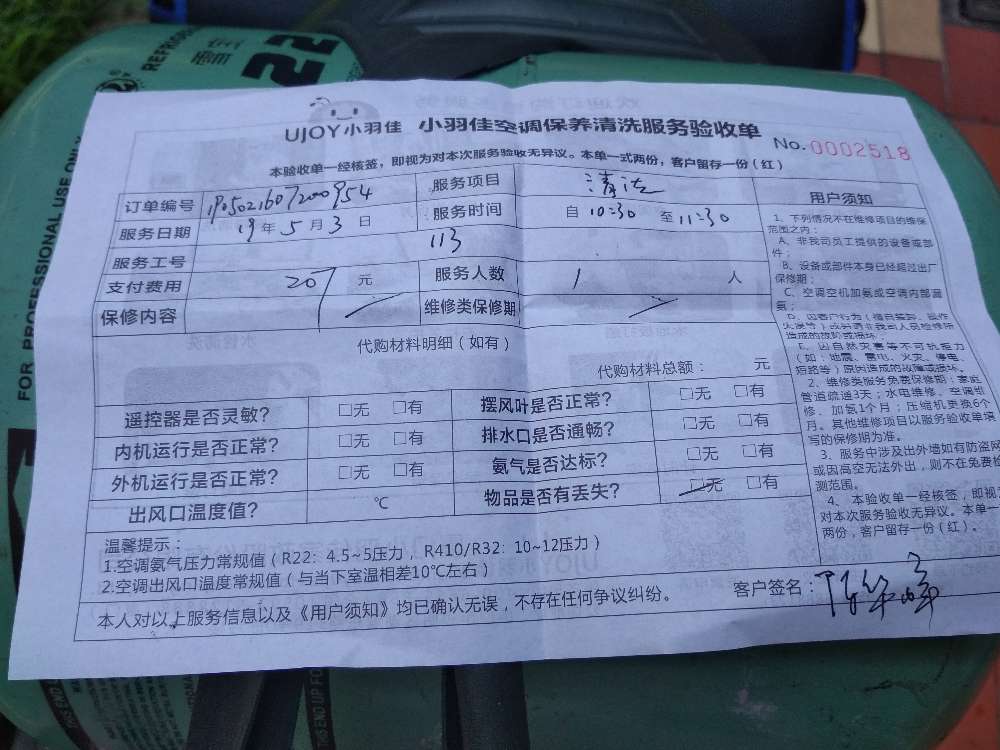 REFRIGE
R22
FOR PROFESSIONAL USE ONLY
UJOY小羽佳 小羽佳空调保养清洗服务验收单
No.0002518
本验收单一经核签，即视为对本次服务验收无异议。本单一式两份，客户留存一份（红）
订单编号
服务项目 清洁
服务日期 19年5月3日 服务时间 自10:30至11:30
服务工号 113
支付费用 207 元 服务人数 1 人
保修内容 维修类保修期
代购材料明细（如有）
代购材料总额： 元
遥控器是否灵敏? □无 □有 摆风叶是否正常? □无 □有
内机运行是否正常? □无 □有 排水口是否通畅? □无 □有
外机运行是否正常? □无 □有 氨气是否达标? □无 □有
出风口温度值? ℃ 物品是否有丢失? □无 □有
温馨提示：
1.空调氨气压力常规值（R22: 4.5~5压力，R410/R32: 10~12压力）
2.空调出风口温度常规值（与当下室温相差10℃左右）
本人对以上服务信息以及《用户须知》均已确认无误，不存在任何争议纠纷。 客户签名：
用户须知
1、下列情况不在维修项目的维保
范围之内：
A、非我司员工提供的设备或部
件；
B、设备或部件本身已经超过出厂
保修期；
C、空调空机加氨或空调内部漏
氨；
E、因自然灾害等不可抗拒力
（如：地震、雷电、火灾、停电、
短路等）原因造成的故障或损坏。
2、维修类服务免费保修期：家庭
管道疏通3天；水电维修、空调维
修、加氨1个月；压缩机更换6个
月。其他维修项目以服务验收单填
写的保修期为准。
3、服务中涉及出外墙如有防盗网
或因高空无法外出，则不在免费检
测范围。
4、本验收单一经核签，即视
对本次服务验收无异议。本单一
两份，客户留存一份（红）。